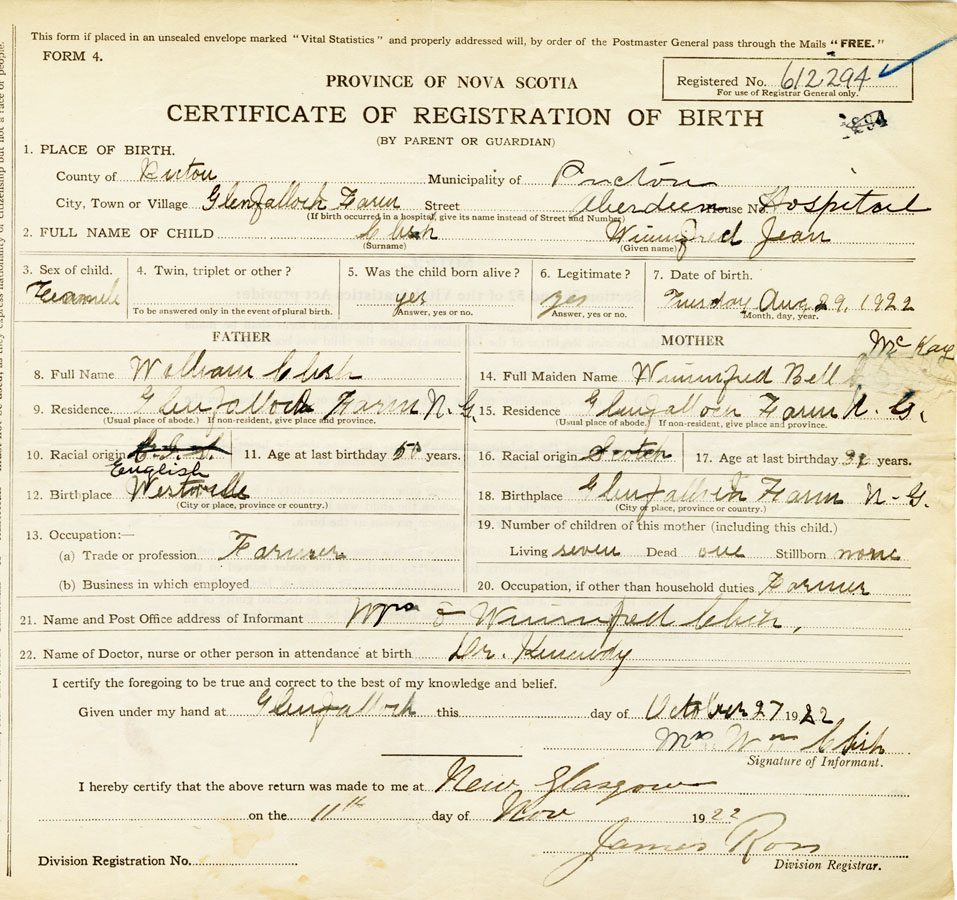 This form if placed in an unsealed envelope marked "Vital Statistics" and properly addressed will, by order of the Postmaster General pass through the Mails "FREE."
FORM 4.
Registered No. 612294
For use of Registrar General only.
PROVINCE OF NOVA SCOTIA
CERTIFICATE OF REGISTRATION OF BIRTH
(BY PARENT OR GUARDIAN)
1. PLACE OF BIRTH.
County of Pictou Municipality of Pictou
City, Town or Village Glenfalloch Farm Street Aberdeen House No. Hospital
(If birth occurred in a hospital, give its name instead of Street and Number)
2. FULL NAME OF CHILD Clish Winnifred Jean
(Surname) (Given name)
3. Sex of child. 4. Twin, triplet or other? 5. Was the child born alive? 6. Legitimate? 7. Date of birth.
Feamile yes yes Tuesday Aug 29, 1922
To be answered only in the event of plural birth. Answer, yes or no. Answer, yes or no. Month, day, year.
FATHER MOTHER
8. Full Name William Clish 14. Full Maiden Name Winnifred Bell McKay
9. Residence. Glenfalloch Farm N.G. 15. Residence Glenfalloch Farm N.G.
(Usual place of abode.) If non-resident, give place and province. (Usual place of abode.) If non-resident, give place and province.
10. Racial origin English 11. Age at last birthday years. 16. Racial origin Scotch 17. Age at last birthday years.
12. Birthplace Westville 18. Birthplace Glenfalloch Farm N-G.
(City or place, province or country.) (City or place, province or country.)
13. Occupation:— 19. Number of children of this mother (including this child.)
(a) Trade or profession Farmer Living seven Dead one Stillborn none
(b) Business in which employed 20. Occupation, if other than household duties Farmer
21. Name and Post Office address of Informant Wm & Winnifred Clish,
22. Name of Doctor, nurse or other person in attendance at birth Dr. Kennedy
I certify the foregoing to be true and correct to the best of my knowledge and belief.
Given under my hand at Glenfalloch this day of October 27 1922
Mrs Wm Clish
Signature of Informant.
I hereby certify that the above return was made to me at New Glasgow
on the 11th day of Nov 1922
James Ross
Division Registration No. Division Registrar.